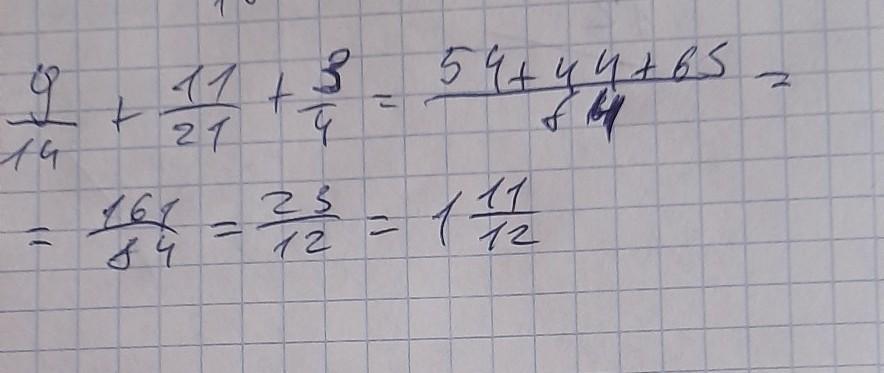 9/14 + 11/21 + 3/4 = (54+44+65)/84 =
= 161/84 = 23/12 = 1 11/12